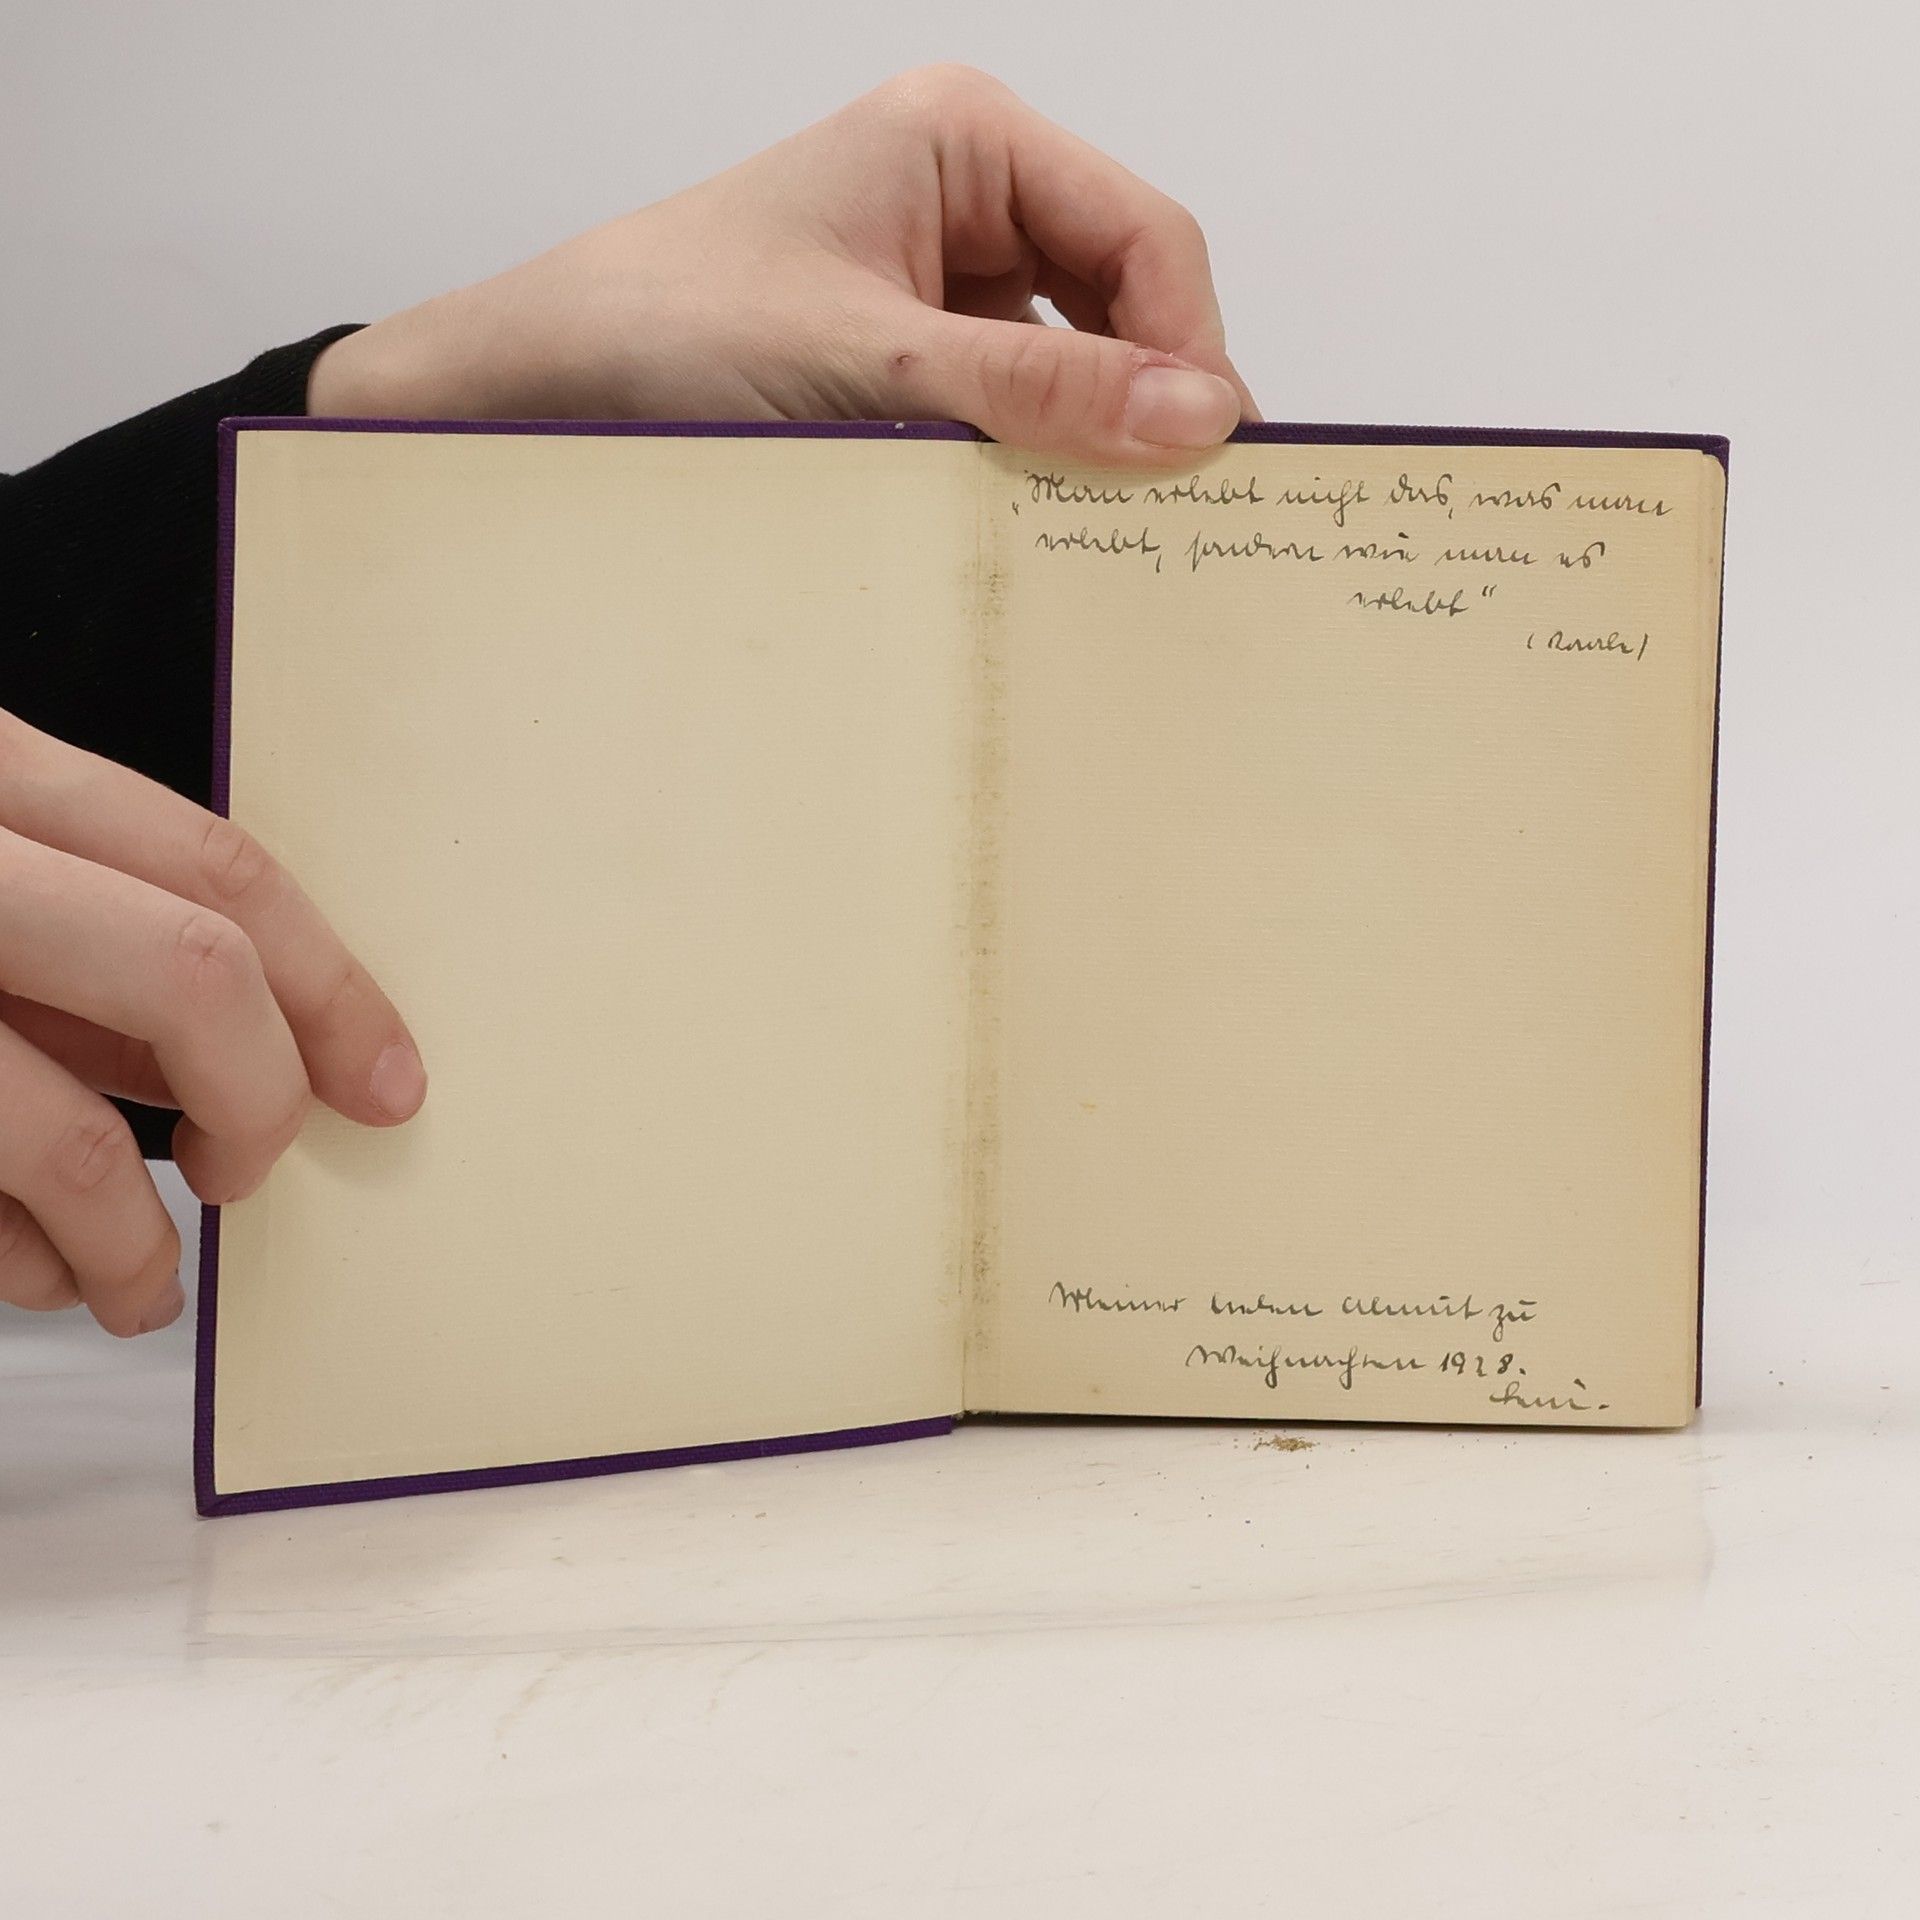 „Man erlebt nicht das, was man
erlebt, sondern wie man es
erlebt“
(Raabe)
Meiner lieben Almut zu
Weihnachten 1928.